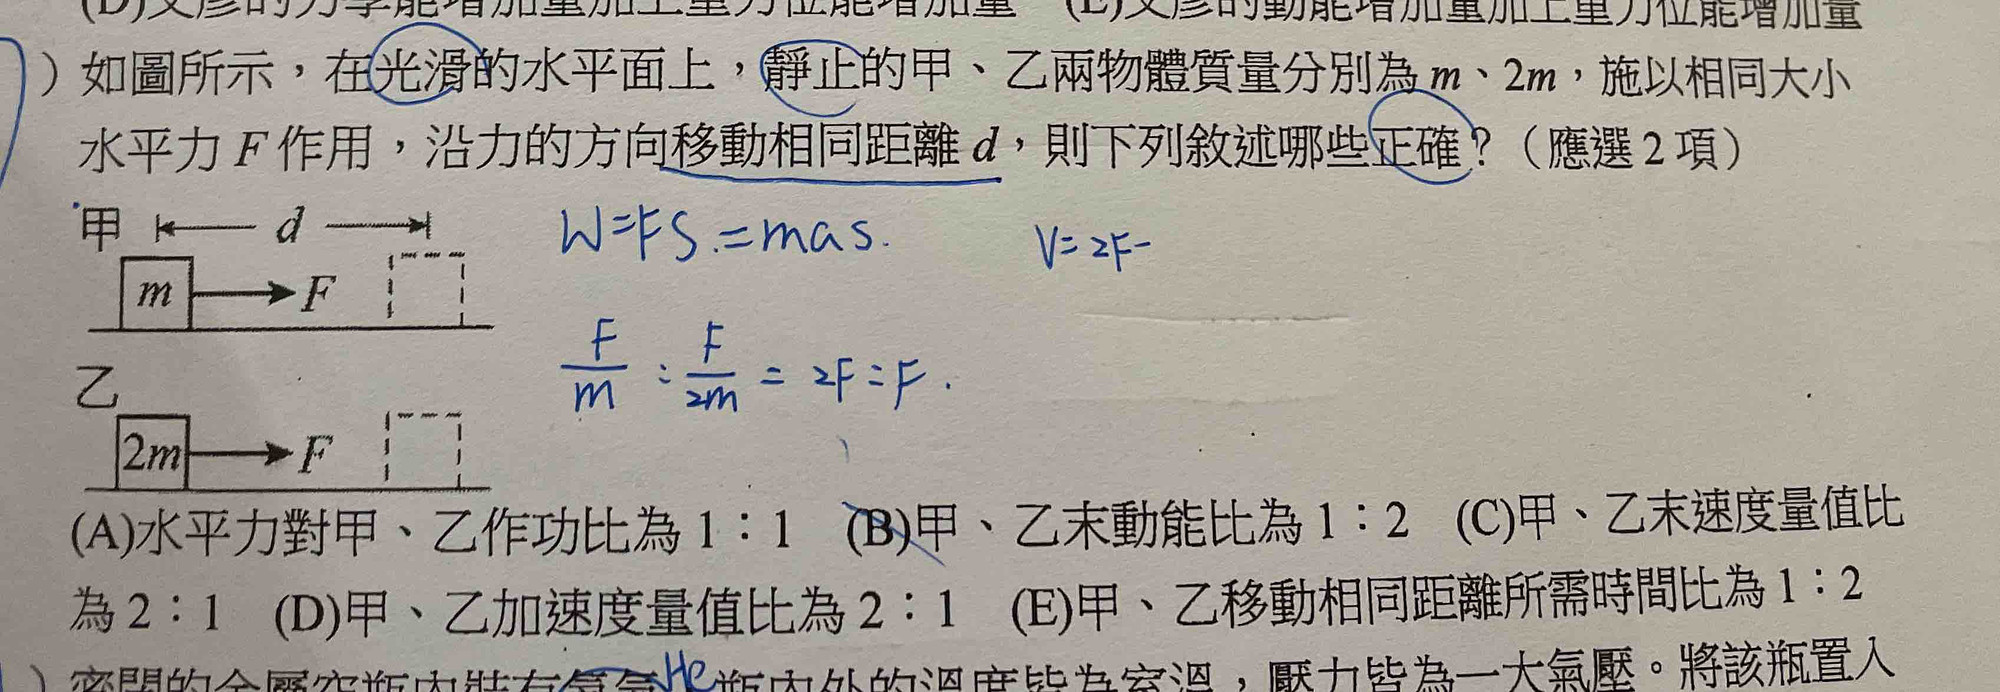 (D)文彥的力學能增加量加上重力位能增加量 (E)文彥的動能增加量加上重力位能增加量
)如圖所示,在光滑的水平面上,靜止的甲、乙兩物體質量分別為 m、2m,施以相同大小
水平力 F 作用,沿力的方向移動相同距離 d,則下列敘述哪些正確?(應選 2 項)
甲 d
W=FS.=mas.
V=2F-
m F
F/m : F/2m = 2F:F.
乙
2m F
(A)水平力對甲、乙作功比為 1:1 (B)甲、乙末動能比為 1:2 (C)甲、乙末速度量值比
為 2:1 (D)甲、乙加速度量值比為 2:1 (E)甲、乙移動相同距離所需時間比為 1:2
He
)密閉的金屬空瓶內裝有氦氣,瓶內外的溫度皆為室溫,壓力皆為一大氣壓。將該瓶置入